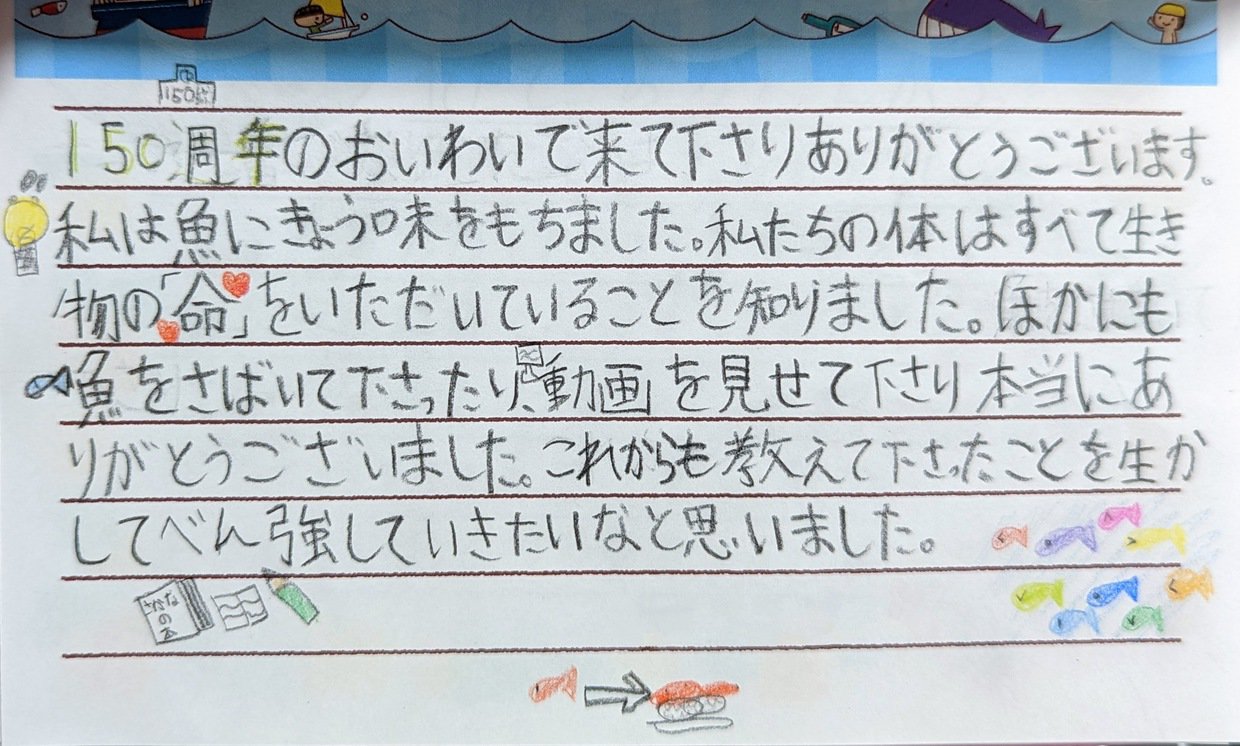 150周
150周年のおいわいで来て下さりありがとうございます。
私は魚にきょう味をもちました。私たちの体はすべて生き
物の「命」をいただいていることを知りました。ほかにも
魚をさばいて下さったり、動画を見せて下さり本当にあ
りがとうございました。これからも教えて下さったことを生か
してべん強していきたいなと思いました。
さかな
の本